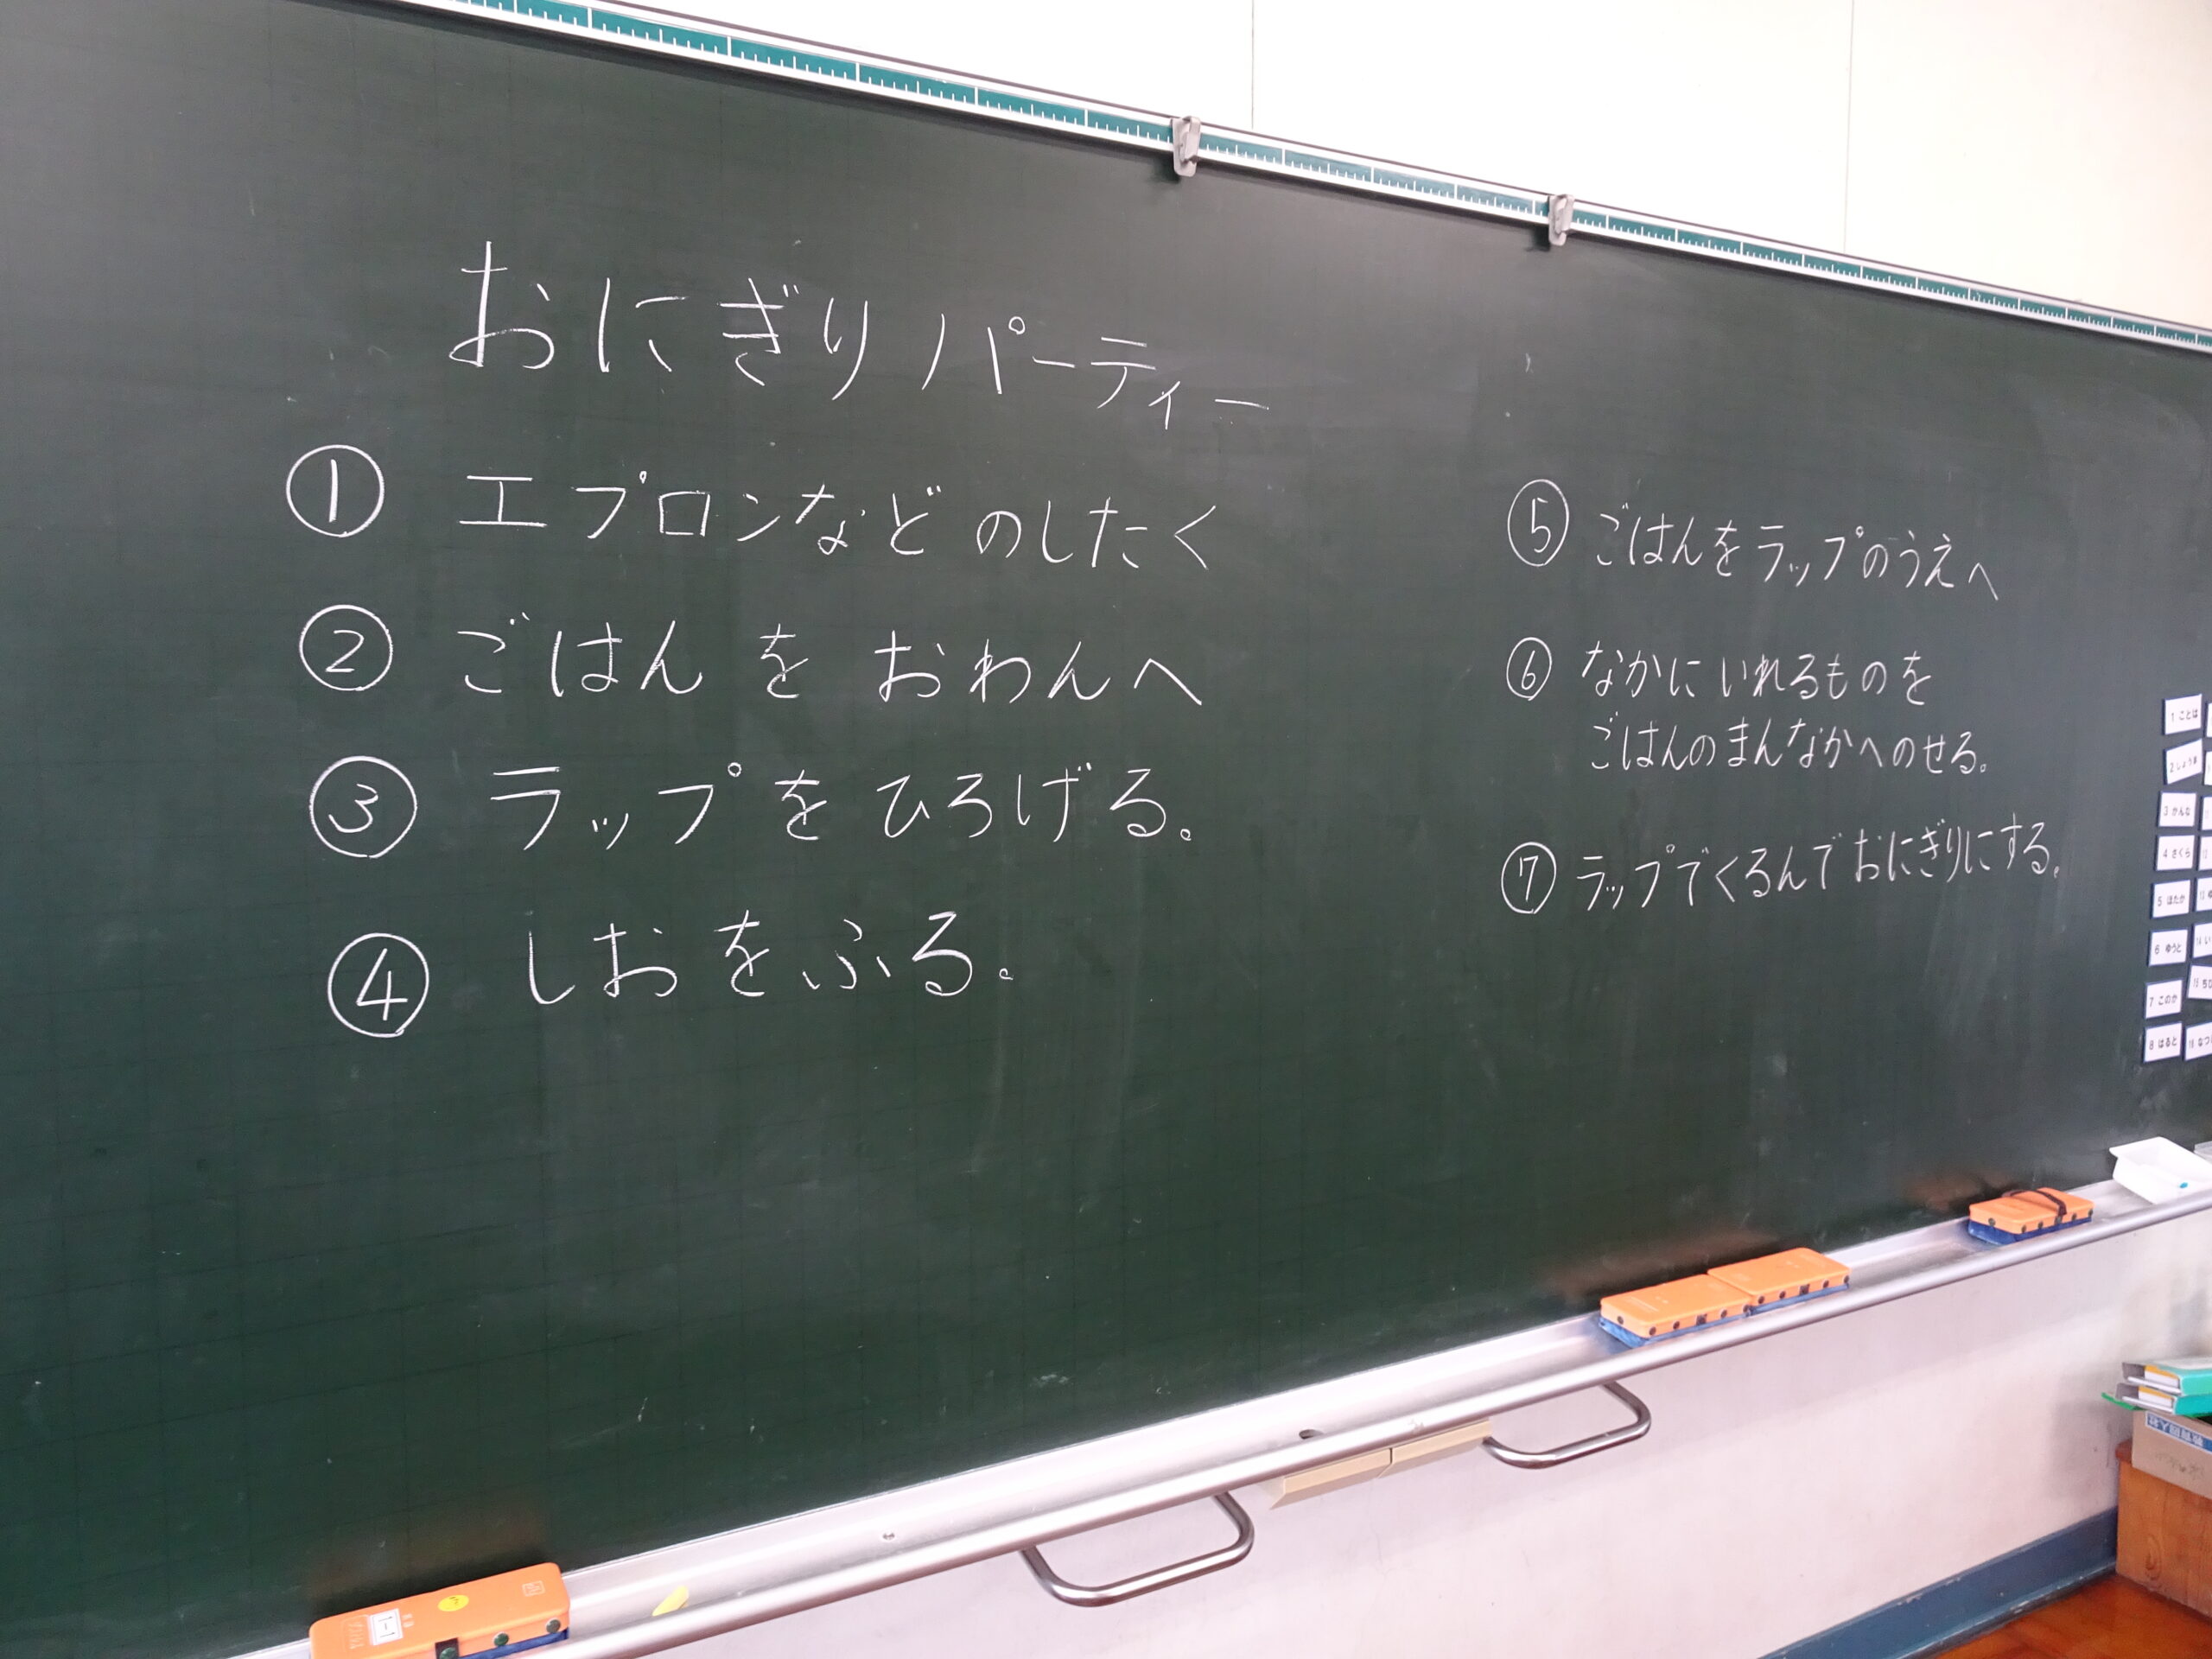 おにぎりパーティー
① エプロンなどのしたく
② ごはん を おわんへ
③ ラップ を ひろげる。
④ しお を ふる。
⑤ ごはんをラップのうえへ
⑥ なかに いれるものを
ごはんのまんなかへのせる。
⑦ ラップでくるんでおにぎりにする。
1 ことは
3 かんな
4 さくら
5 ほたか
6 ゆうと
7 このか
8 はると